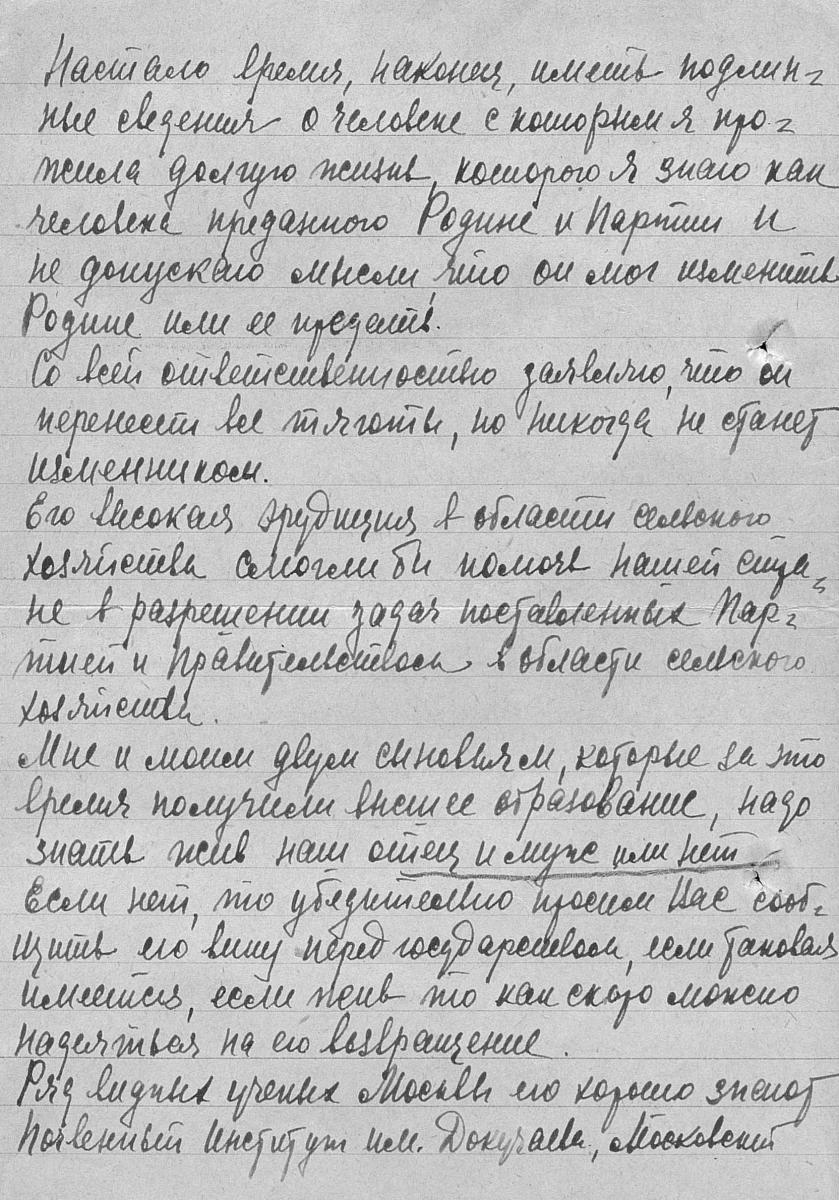 Настало время, наконец, иметь подлин-
ные сведения о человеке с которым я про-
жила долгую жизнь, которого я знаю как
человека преданного Родине и Партии и
не допускаю мысли, что он мог изменить
Родине или ее предать.
Со всей ответственностью заявляю, что он
перенесет все тяготы, но никогда не станет
изменником.
Его высокая эрудиция в области сельского
хозяйства смогли бы помочь нашей стра-
не в разрешении задач поставленных Пар-
тией и Правительством в области сельского
хозяйства.
Мне и моим двум сыновьям, которые за это
время получили высшее образование, надо
знать жив наш отец и муж или нет
Если нет, то убедительно просим Вас сооб-
щить его вину перед государством, если таковая
имеется, если жив то как скоро можно
надеяться на его возвращение.
Ряд видных ученых Москвы его хорошо знают
Почвенный Институт им. Докучаева, Московский